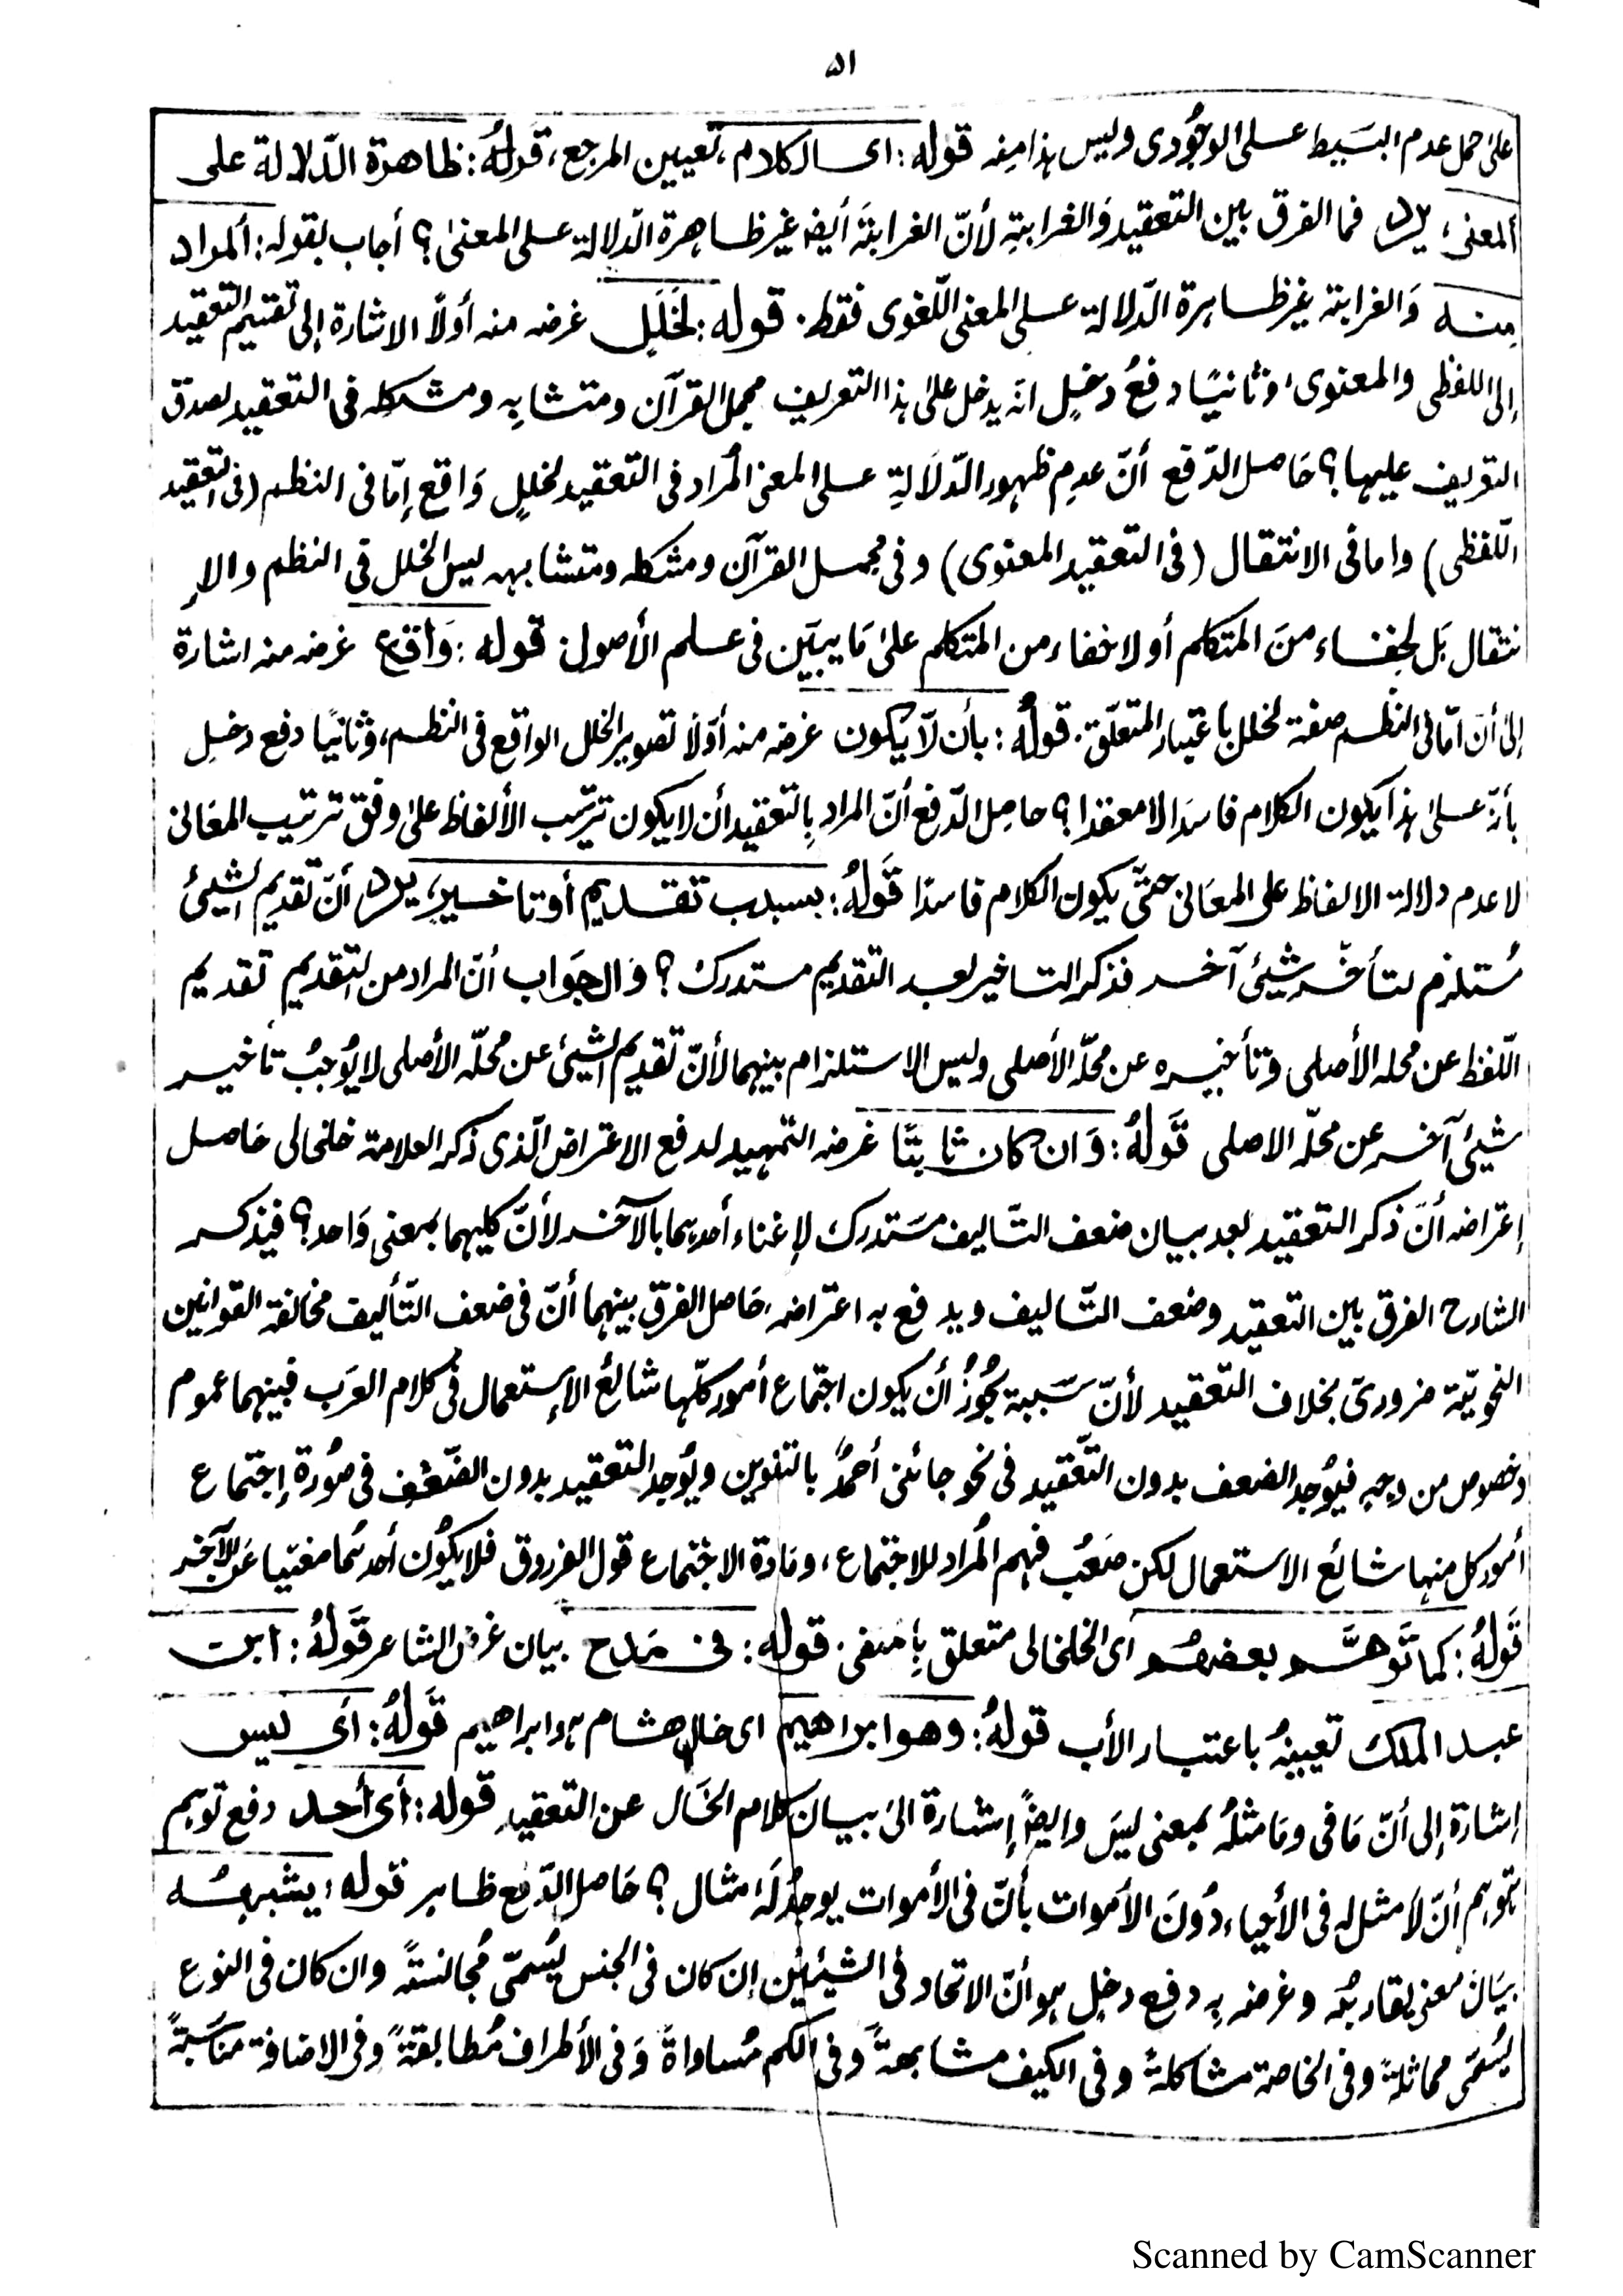 ۵۱
على حمل عدم البسيط على الوجودى وليس هذا منه قوله: اى الكلام، تعيين المرجع، قوله: ظاهرة الدّلالة على
المعنى، يرد فما الفرق بين التعقيد والغرابة لأنّ الغرابة أيضا غير ظاهرة الدّلالة على المعنىٰ؟ أجاب بقوله: ألمراد
منه والغرابة غير ظاهرة الدّلالة على المعنى اللّغوى فقط. قوله: لخلل غرضه منه أولًا الاشارة إلى تقسيم التعقيد
إلى اللفظى والمعنوى، وثانيًا دفعُ دخلٍ انه يدخل على هذا التعريف مجمل القرآن ومتشابه ومشكله فى التعقيد لصدق
التعريف عليها؟ حاصل الدّفع أنّ عدم ظهور الدّلالةِ على المعنى المُراد فى التعقيد لخللٍ واقع إمّا فى النظم (فى التعقيد
اللّفظى) واما فى الانتقال (فى التعقيد المعنوى) وفى مجمل القرآن ومشكله ومتشابهه ليس الخلل فى النظم والإ
نتقال بل لخفاء منَ المتكلم أو لاخفاء من المتكلم علىٰ ما يبيّن فى علم الأصول. قوله: واقع غرضه منه اشارة
إلىٰ أنّ امّا فى النظم صفة لخلل باعتبار المتعلّق. قولُه: بأن لّا يكون غرضه منه أوّلًا تصوير الخلل الواقع فى النظم، وثانيًا دفع دخلٍ
بأنه علىٰ هذا يكون الكلام فاسدا لا معقدا؟ حاصل الدّفع أنّ المراد بالتعقيد أن لا يكون ترتيب الألفاظ علىٰ وفق ترتيب المعانى
لا عدم دلالة الالفاظ على المعانى حتّى يكون الكلام فاسدًا قولهُ: بسبب تقديم أو تاخير، يرد أنّ تقديم الشيئ
مُستلزم لتأخّر شيئ آخر فذكر التاخير بعد التقديم مستدرك؟ والجواب أنّ المراد من التقديم تقديم
اللّفظ عن محله الأصلى وتأخيره عن محلّه الأصلى وليس الاستلزام بينهما لأنّ تقديم الشيئ عن محلّه الأصلى لا يُوجبُ تاخير
شيئ آخر عن محلّه الاصلى قولهُ: وان كان ثابتًا غرضه التمهيد لدفع الاعتراض الّذى ذكر العلامة خلخالى حاصل
إعتراضه أنّ ذكر التعقيد بعد بيان ضعف التّاليف مستدرك لإغناء أحدهما بالآخر لأنّ كليهما بمعنى واحد؟ فيذكر
الشارح الفرق بين التعقيد وضعف التّاليف ويدفع به اعتراضه، حاصل الفرق بينهما أنّ فى ضعف التّأليف مخالفة القوانين
النحويّة ضرورىّ بخلاف التعقيد لأنّ سببه يجُوزُ أن يكون اجتماع أمور كلّها شائعُ الإستعمال فى كلام العرب فبينهما عموم
وخصوص من وجهٍ فيُوجد الضعف بدون التّعقيد فى نحو جائنى أحمدٌ بالتنوين ويُوجد التعقيد بدون الضّعف فى صُورة إجتماع
أمور كل منها شائع الاستعمال لكن صعُب فهم المُراد للاجتماع، ومادة الاجتماع قول الفرزدق فلا يكُون أحدهما مغنيا عن الآخر
قولهُ: كما توهّم بعضهُم أى الخلخالى متعلق بمنفى. قوله: فى مدح بيان غرض الشاعر قولهُ: ابن
عبد الملك تعيينهُ باعتبار الأب قولهُ: وهو ابراهيم اى خال هشام هو ابراهيم قولهُ: أى ليس
إشارة إلى أنّ مَا فى ومَا مثلُه بمعنى ليسَ وايضًا إشارة الىٰ بيان كلام الخال عن التعقيد قوله: أى أحد دفع توهم
توهم أنّ لا مثل له فى الأحياء دُونَ الأموات بأنّ فى الأموات يوجدُ لهُ امثال؟ حاصل الدّفع ظاهر قوله: يشبهه
بيانَ معنى يقاربُه وغرضه بِه دفع دخلٍ هو أنّ الاتحاد فى الشيئين إن كان فى الجنس يُسمّى مُجانسةً وان كان فى النوع
يُسمّى مماثلةً وفى الخاصة مشاكلةً وفى الكيف مشابهةً وفى الكم مُساواةً وفى الأطراف مُطابقةً وفى الاضافة مناسبةً
Scanned by CamScanner